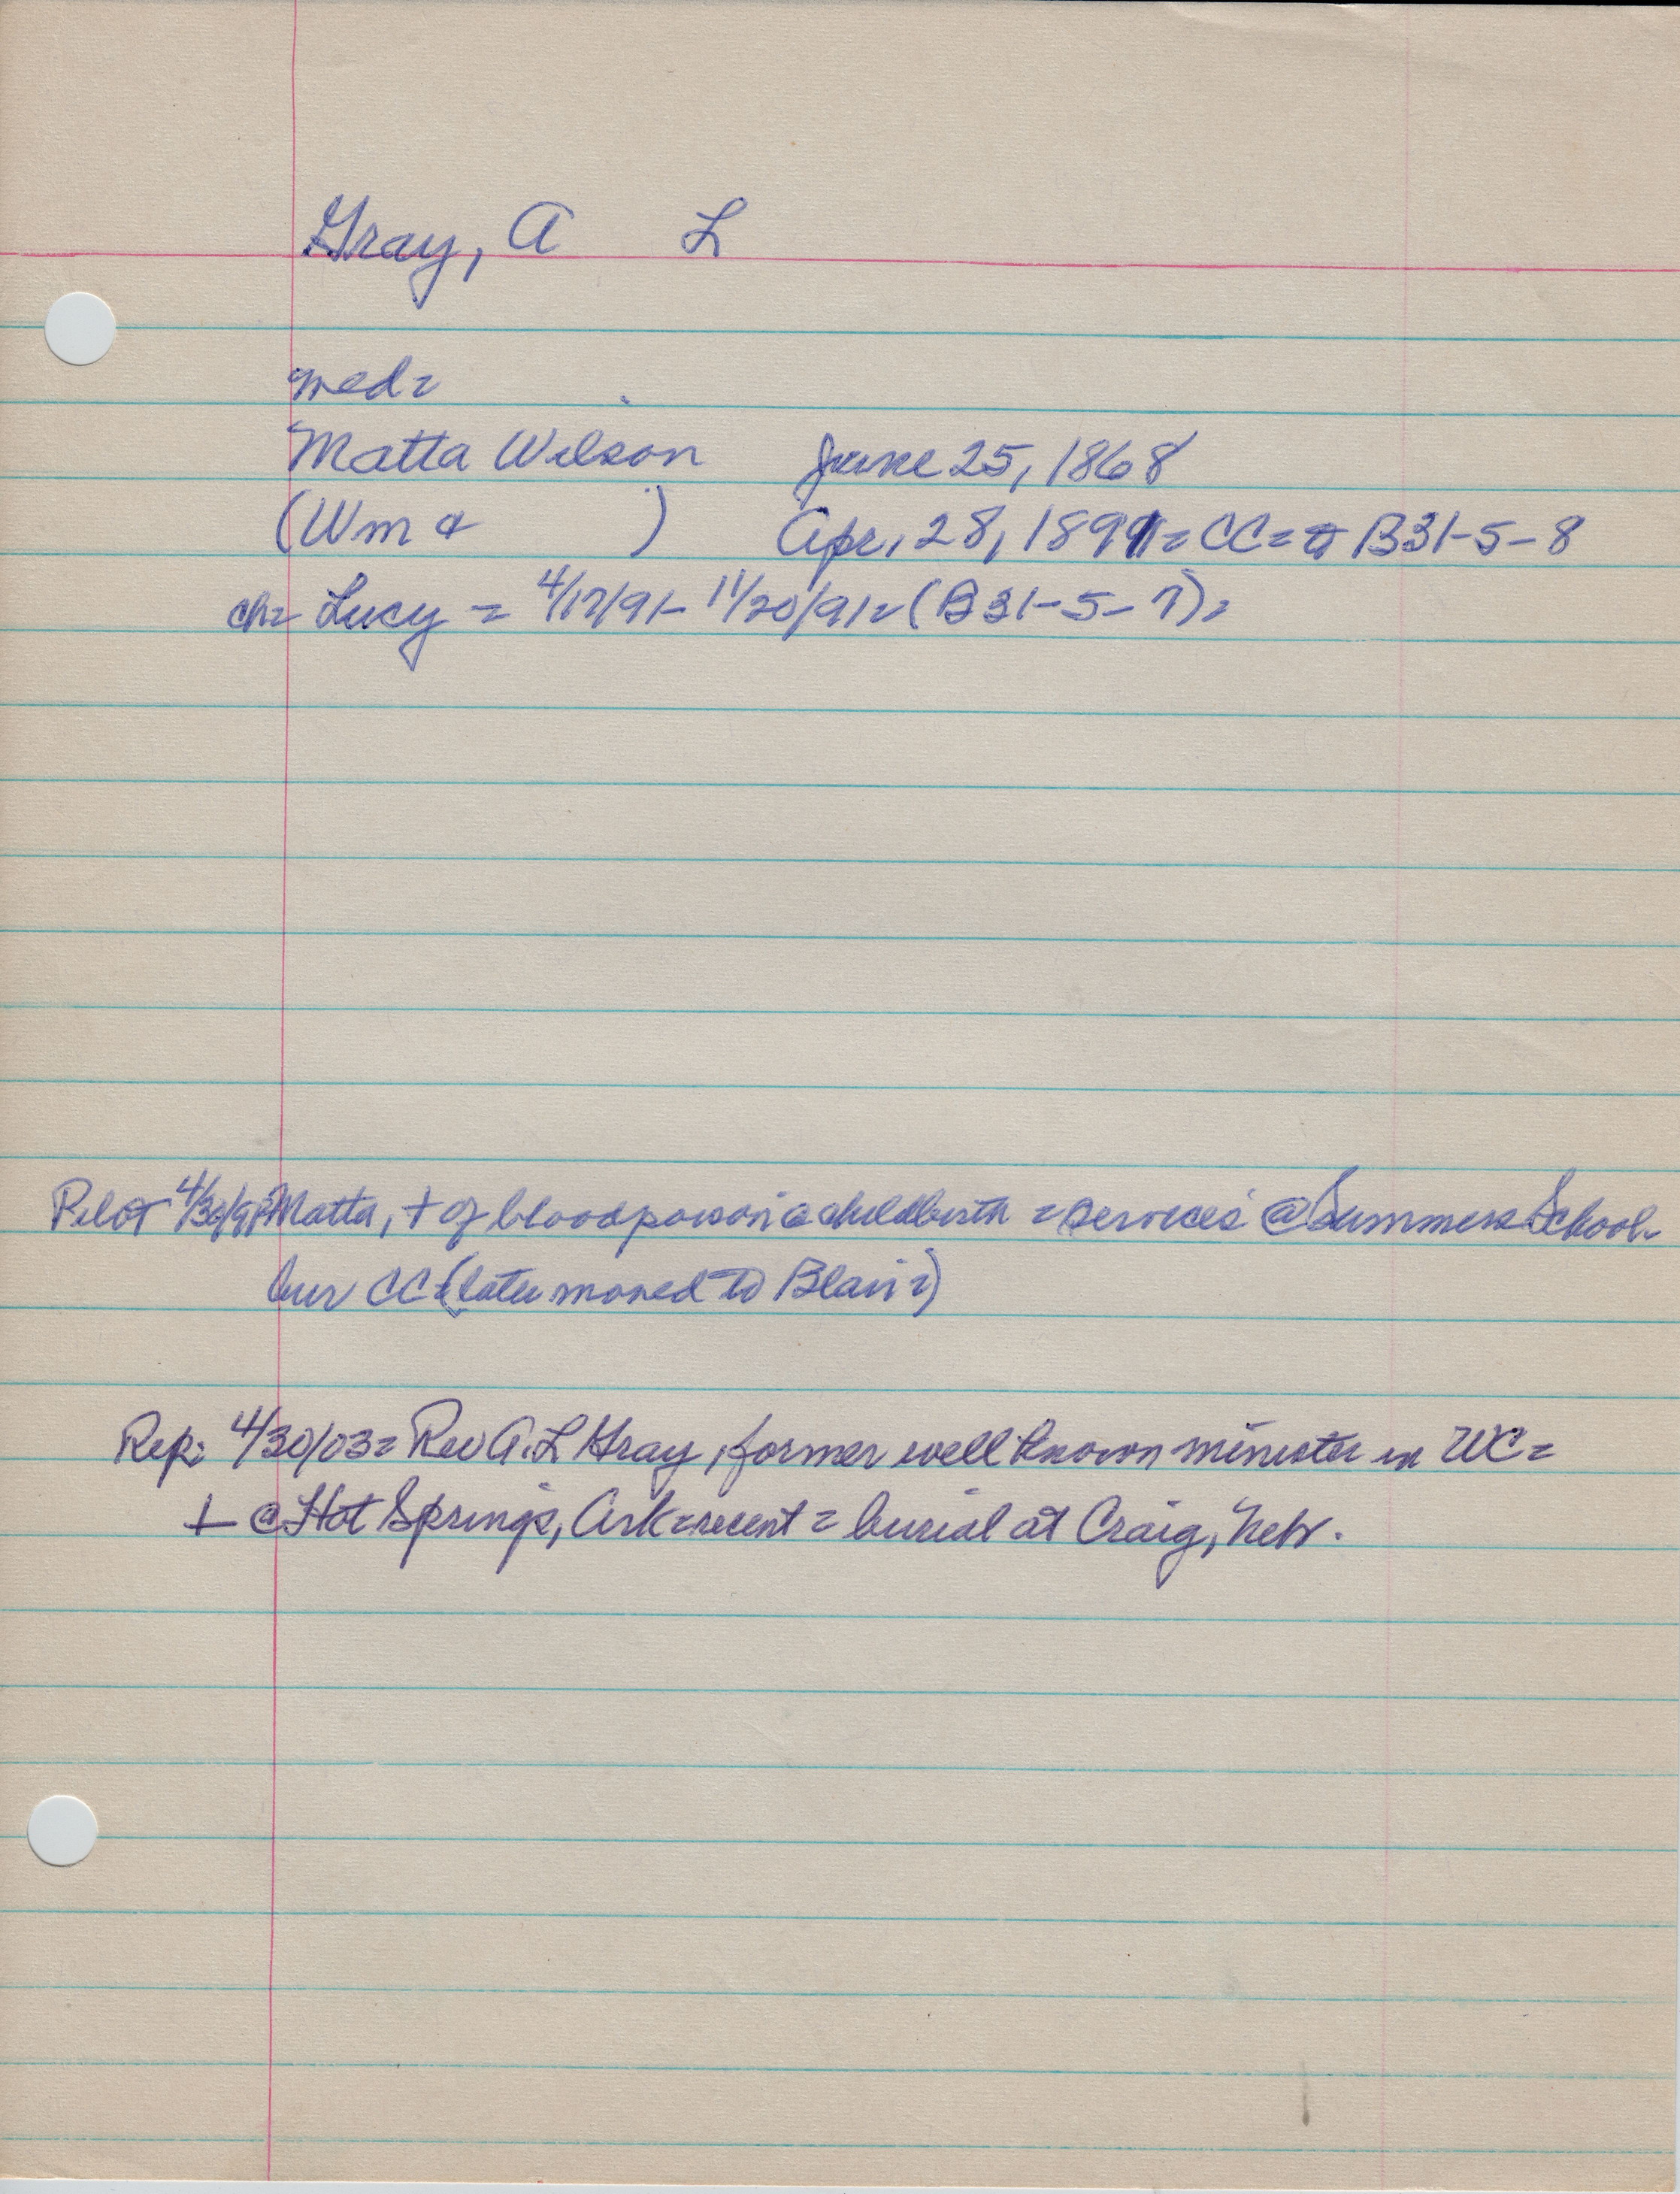 Gray, A L
med=
Matta Wilson June 25, 1868
(Wm & ) Apr. 28, 1891= CC= B31-5-8
ch= Lucy = 4/17/91- 11/20/91= (B31-5-7)=
Pilot 4/30/91= Matta, + of bloodpoison @ childbirth = services @ Summers School-
bur CC (later moved to Blair=)
Rep: 4/30/03= Rev A. L Gray, former well known minister in WC=
+ @ Hot Springs, Ark=recent= burial at Craig, Nebr.